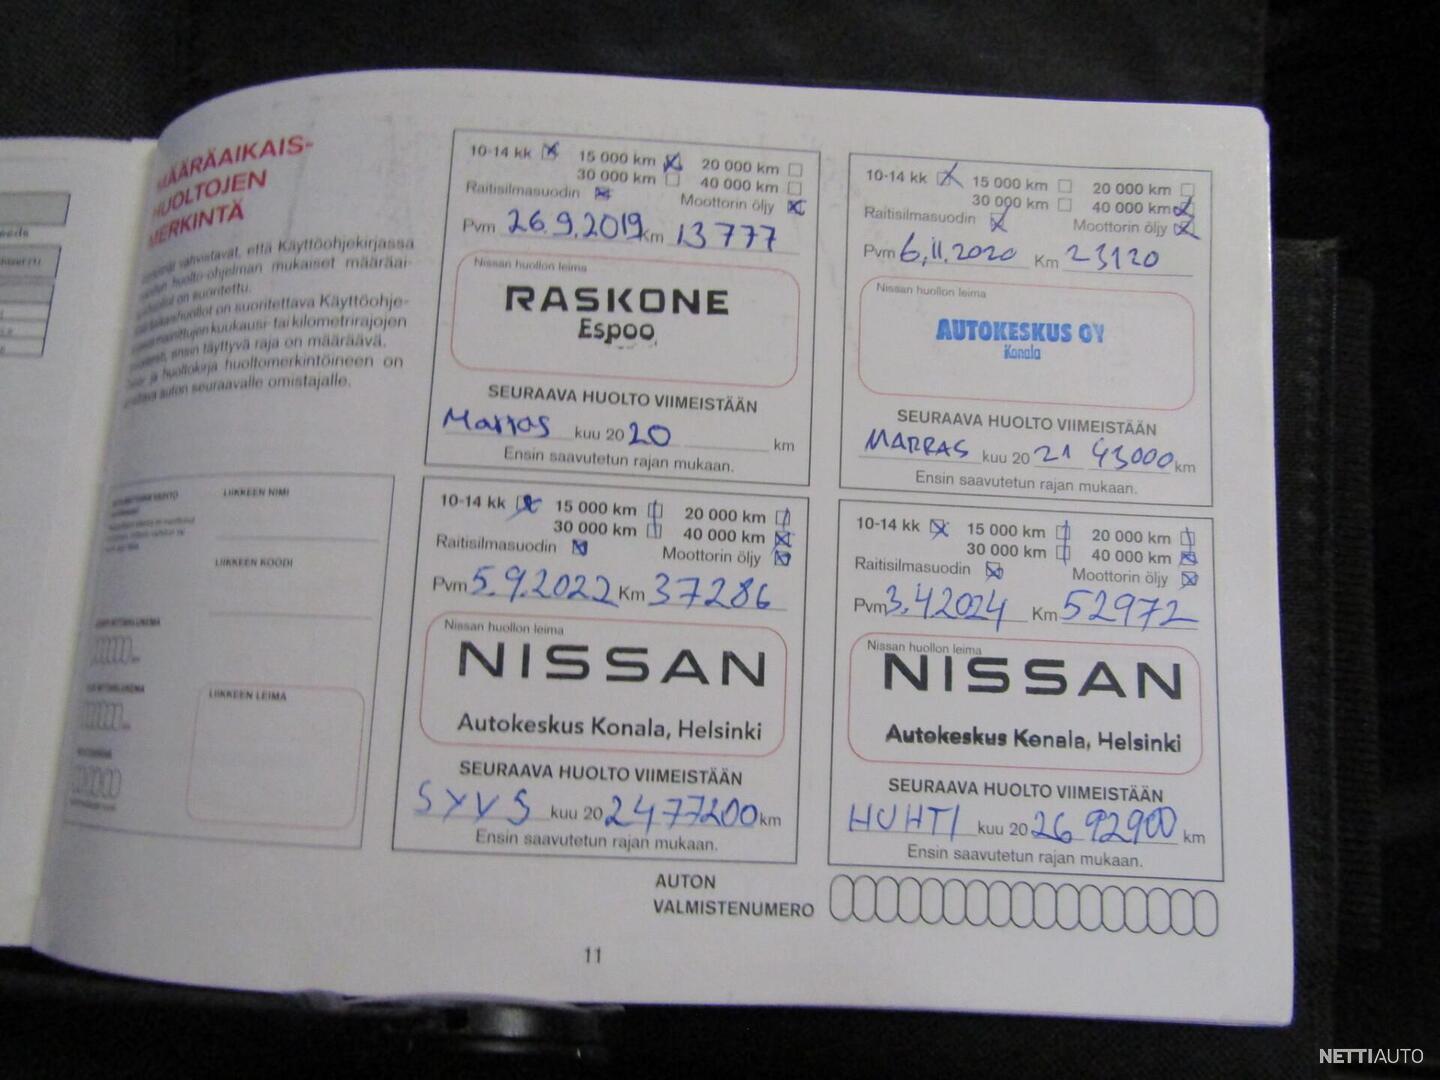 MÄÄRÄAIKAIS-
HUOLTOJEN
MERKINTÄ
vahvistavat, että Käyttöohjekirjassa
huolto-ohjelman mukaiset määräai-
on suoritettu.
on suoritettava Käyttöohje-
mainittujen kuukausi- tai kilometrirajojen
ensin täyttyvä raja on määräävä.
ja huoltokirja huoltomerkintöineen on
auton seuraavalle omistajalle.
LIIKKEEN NIMI
LIIKKEEN KOODI
LIIKKEEN LEIMA
10-14 kk 15 000 km 20 000 km
30 000 km 40 000 km
Raitisilmasuodin Moottorin öljy
Pvm 26.9.2019 Km 13777
Nissan huollon leima
RASKONE
Espoo
SEURAAVA HUOLTO VIIMEISTÄÄN
Marras kuu 20 20 km
Ensin saavutetun rajan mukaan.
10-14 kk 15 000 km 20 000 km
30 000 km 40 000 km
Raitisilmasuodin Moottorin öljy
Pvm 6.11.2020 Km 23120
Nissan huollon leima
AUTOKESKUS OY
Konala
SEURAAVA HUOLTO VIIMEISTÄÄN
MARRAS kuu 20 21 43000 km
Ensin saavutetun rajan mukaan.
10-14 kk 15 000 km 20 000 km
30 000 km 40 000 km
Raitisilmasuodin Moottorin öljy
Pvm 5.9.2022 Km 37286
Nissan huollon leima
NISSAN
Autokeskus Konala, Helsinki
SEURAAVA HUOLTO VIIMEISTÄÄN
SYYS kuu 20 24 77200 km
Ensin saavutetun rajan mukaan.
10-14 kk 15 000 km 20 000 km
30 000 km 40 000 km
Raitisilmasuodin Moottorin öljy
Pvm 3.4.2024 Km 52972
Nissan huollon leima
NISSAN
Autokeskus Konala, Helsinki
SEURAAVA HUOLTO VIIMEISTÄÄN
HUHTI kuu 20 26 92900 km
Ensin saavutetun rajan mukaan.
AUTON
VALMISTENUMERO
11
NETTIAUTO